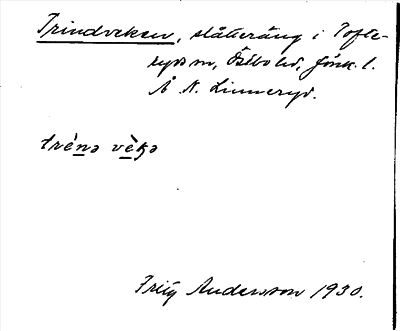 Trindveken, slåtteräng i Tofte-
ryds sn, Östbo hd, Jönk. l.
Å N. Linneryd.
trènə vèkə
Fritz Anderson 1930.